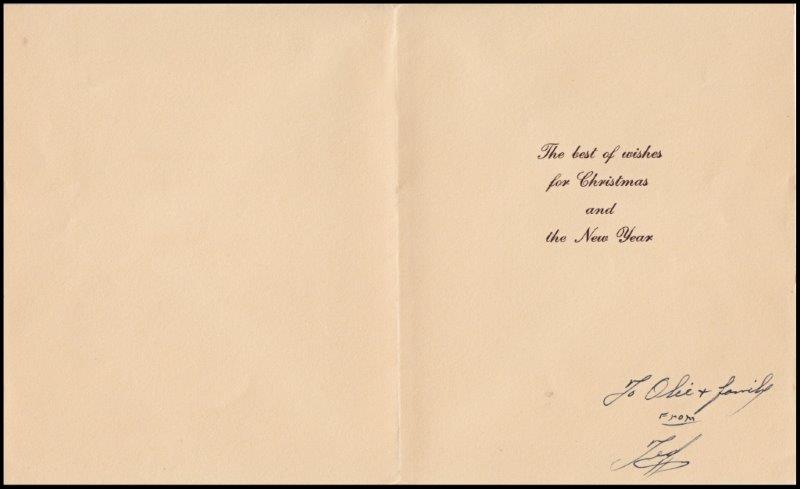 The best of wishes
for Christmas
and
the New Year
To Olie + family
From